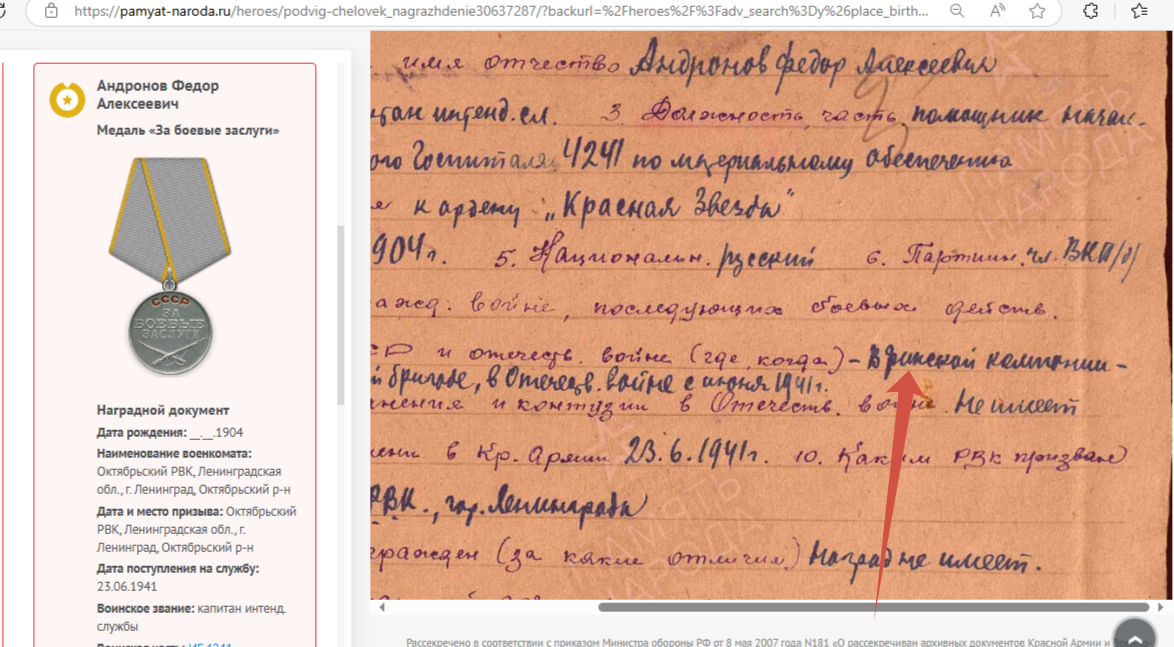 https://pamyat-naroda.ru/heroes/podvig-chelovek_nagrazhdenie30637287/?backurl=%2Fheroes%2F%3Fadv_search%3Dy%26place_birth...
Андронов Федор
Алексеевич
Медаль «За боевые заслуги»
СССР
ЗА
БОЕВЫЕ
ЗАСЛУГИ
Наградной документ
Дата рождения: __.__.1904
Наименование военкомата:
Октябрьский РВК, Ленинградская
обл., г. Ленинград, Октябрьский р-н
Дата и место призыва: Октябрьский
РВК, Ленинградская обл., г.
Ленинград, Октябрьский р-н
Дата поступления на службу:
23.06.1941
Воинское звание: капитан интенд.
службы
имя отчество Андронов Федор Алексеевич
интенд. сл. 3. Должность, часть помощник начал.
ого Госпиталя 4241 по материальному обеспечению
к ордену „Красная Звезда"
904г. 5. Национальн. русский 6. Партийн. чл. ВКП/б/
ажд. войне, последующих боевых действ.
СР и отечеств. войне (где, когда) – в финской кампании –
й бригаде, в Отечеств. войне с июня 1941г.
нения и контузии в Отечеств. войне. Не имеет
в Кр. Армии 23.6.1941г. 10. Каким РВК призван
РВК., гор. Ленинграда
гражден (за какие отличия) Наград не имеет.
ПАМЯТЬ
НАРОДА
ПАМЯТЬ
НАРОДА
Рассекречено в соответствии с приказом Министра обороны РФ от 8 мая 2007 года N181 «О рассекречиван архивных документов Красной Армии и